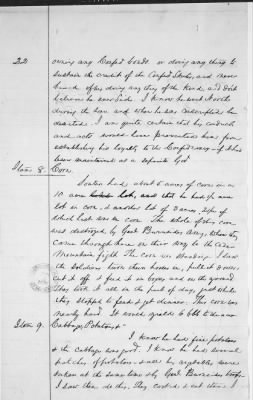 22 owning any Confed bonds or doing any thing to
sustain the credit of the Confed States, and never
heard of his doing any thing of the kind, and don't
believe he ever did. I know he went North
during the war and when he was conscripted he
deserted. I am quite certain that his conduct
and acts would have prevented him from
establishing his loyalty to the Confederacy if it had
been maintained as a separate Govt
Item 8. Corn.
had about 5 acres of corn in a
10 acre lot, and that he had
lot in corn, & another lot of 3 acres,
which last was in corn. The whole of this corn
was destroyed by Genl Burnsides Army, when they
came through here on their way to the Cedar
Mountain fight. The corn was standing. I saw
the soldiers turn their horses in, pull it & some
cut off & fed it in boxes and on the ground.
They took it all on the first of day, just while
they stopped to feed & get dinner. The corn was
nearly hard. It would yield 6 bbls to the acre
Item 9. Cabbage, Potatoes &c
I know he had fine potatoes
& the cabbage was good. I know he had several
patches of potatoes & all his vegetables were
taken at the same time & by Genl Burnsides troops
I saw them do this. They cooked & eat them. I